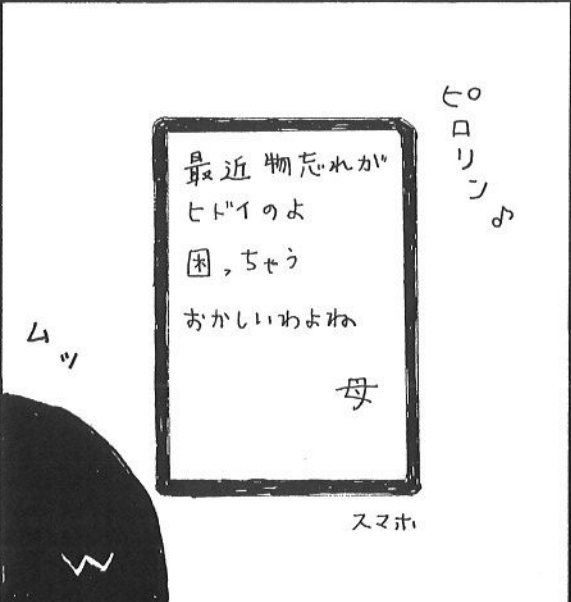 ピロリン♪
最近物忘れが
ヒドイのよ
困っちゃう
おかしいわよね
母
スマホ
ムッ